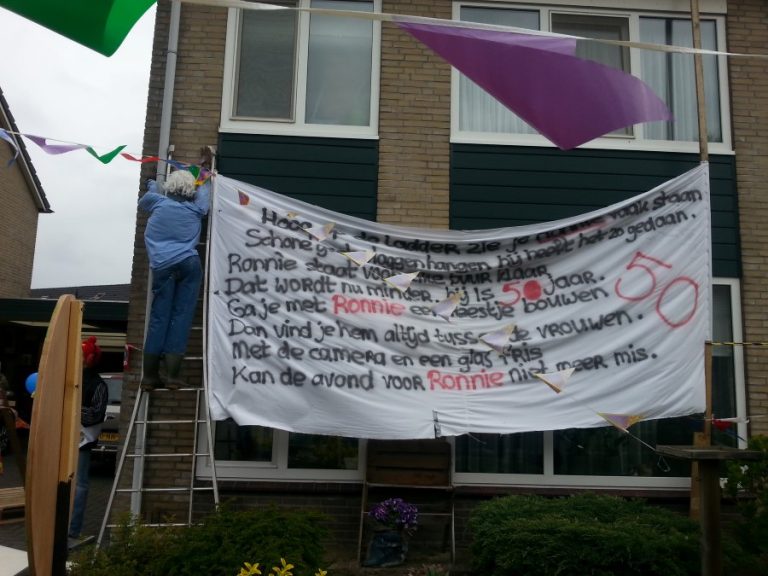 Hoog de ladder zie je Ronnie vaak staan
Schone vlaggen hangen hij heeft het zo gedaan.
Ronnie staat voor buur klaar
Dat wordt nu minder, hij is 50 jaar.
50
Ga je met Ronnie een feestje bouwen
Dan vind je hem altijd de vrouwen.
Met de camera en een glas fris
Kan de avond voor Ronnie niet meer mis.